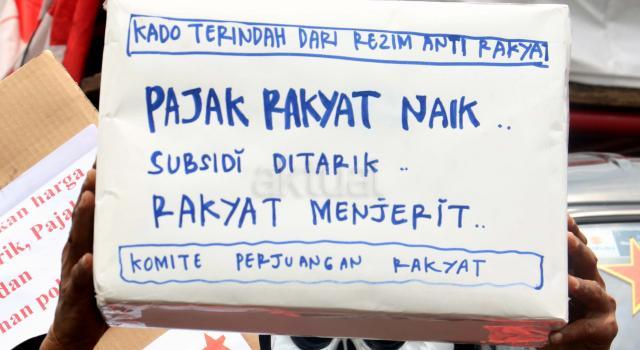 KADO TERINDAH DARI REZIM ANTI RAKYAT
PAJAK RAKYAT NAIK ..
SUBSIDI DITARIK ..
aktual
RAKYAT MENJERIT..
KOMITE PERJUANGAN RAKYAT
kan harga
rik, Pajak
dan